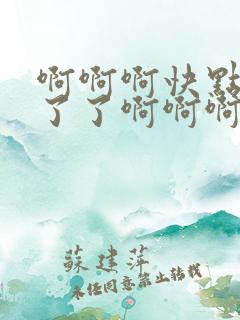 啊啊啊快點
了了啊啊啊
蘇建萍
未经同意禁止转载